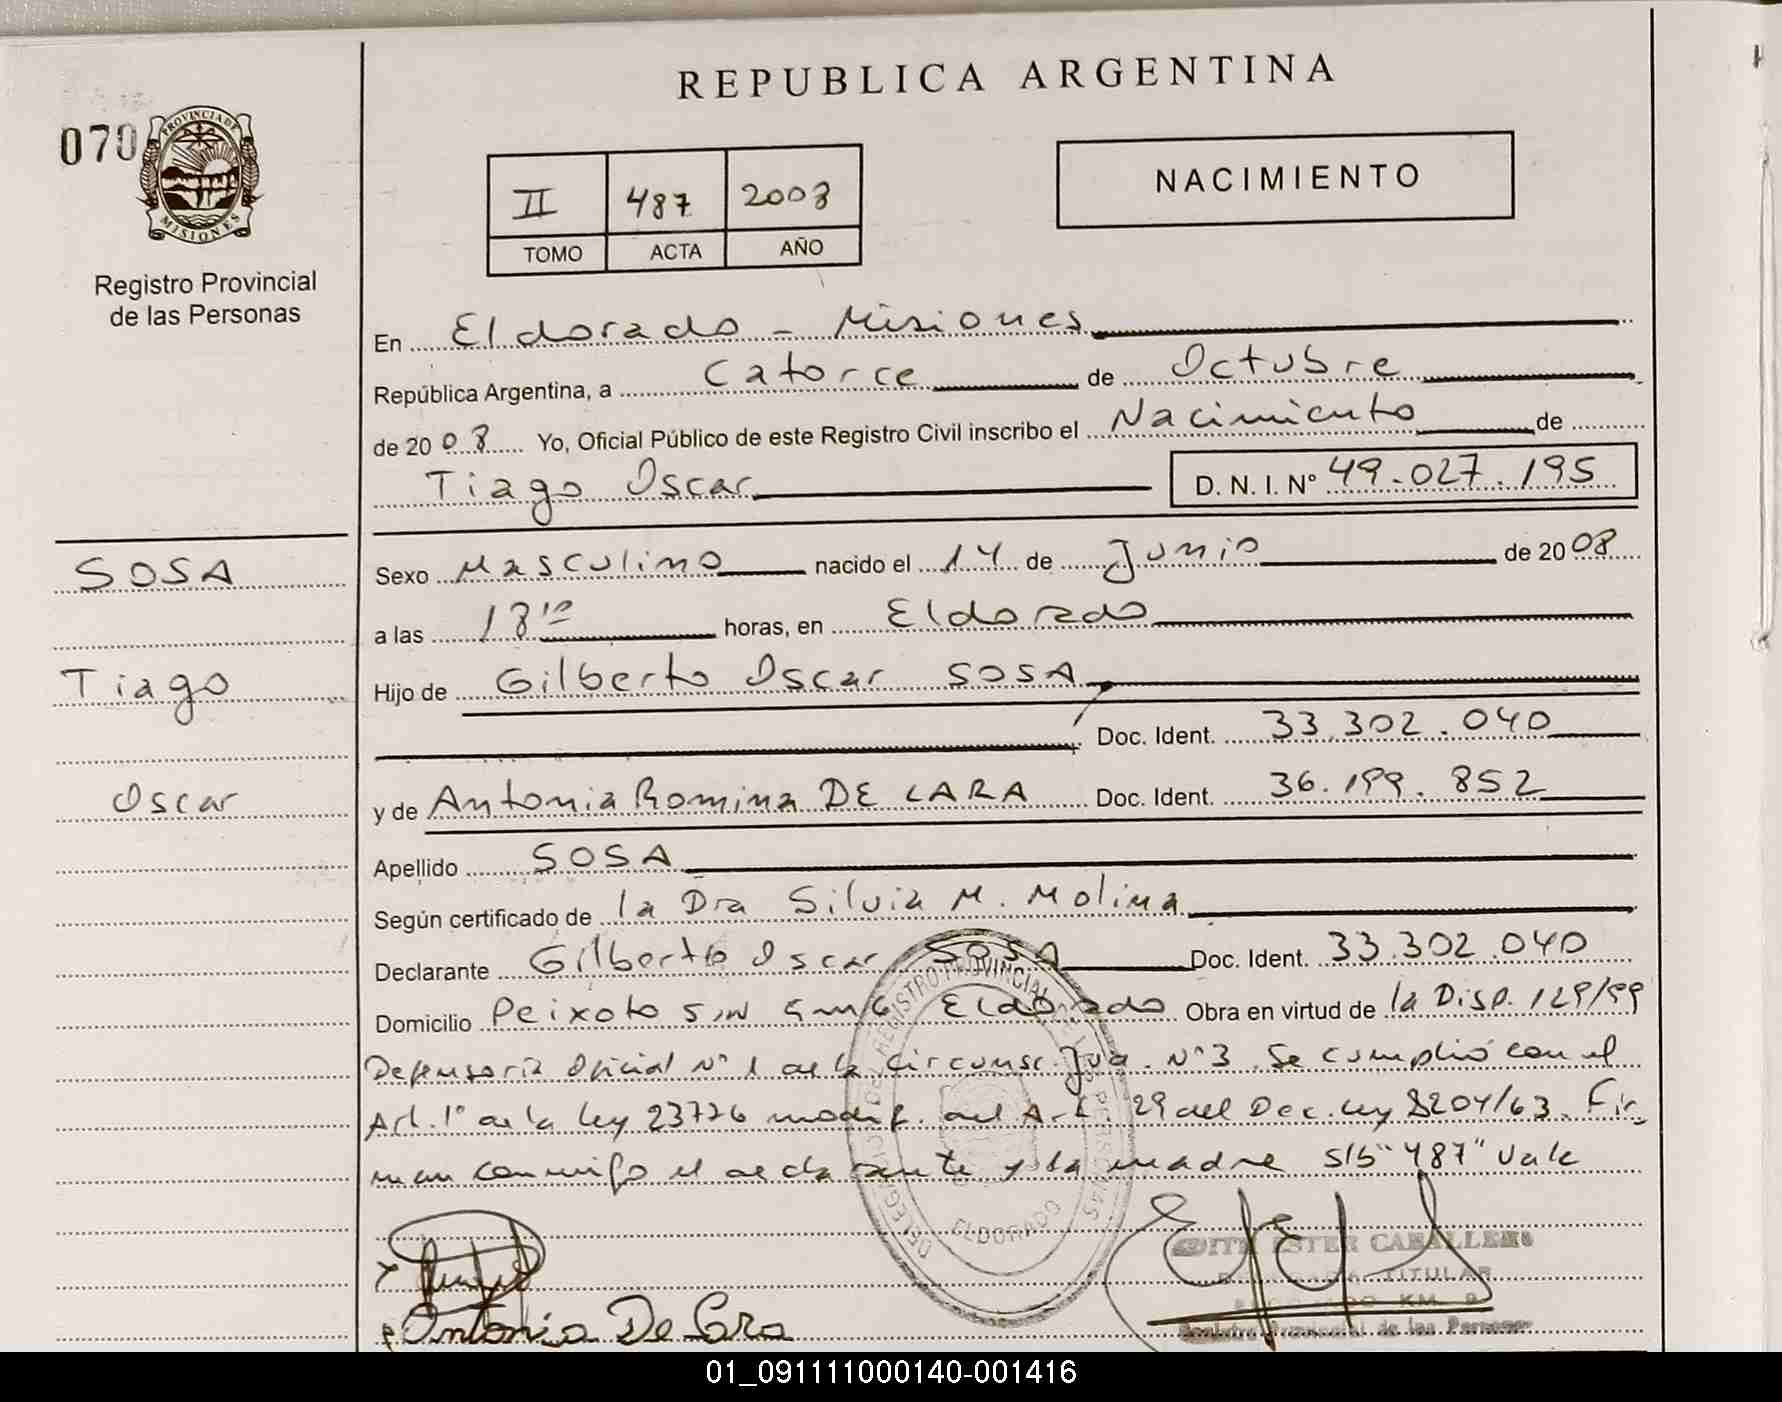 REPUBLICA ARGENTINA
070
PROVINCIA DE
MISIONES
Registro Provincial
de las Personas
NACIMIENTO
II 487 2008
TOMO ACTA AÑO
En Eldorado - Misiones
República Argentina, a Catorce de Octubre
de 2008 Yo, Oficial Público de este Registro Civil inscribo el Nacimiento de
Tiago Oscar D. N. I. N° 49.027.195
SOSA
Tiago
Oscar
Sexo Masculino nacido el 14 de Junio de 2008
a las 18 10 horas, en Eldorado
Hijo de Gilberto Oscar SOSA
Doc. Ident. 33.302.040
y de Antonia Romina DE LARA Doc. Ident. 36.199.852
Apellido SOSA
Según certificado de la Dra Silvia M. Molina
Declarante Gilberto Oscar SOSA Doc. Ident. 33.302.040
Domicilio Peixoto S/N Eldorado Obra en virtud de la Disp. 129/99
Defensoria Oficial N° 1 de la Circunsc. Jud. N° 3. Se cumplió con el
Art. 1° de la Ley 23776 modif. del Art. 29 del Dec. Ley 8204/63. Fir
man conmigo el declarante y la madre S/b "487" Vale
DELEGACION DEL REGISTRO PROVINCIAL DE LAS PERSONAS
ELDORADO
Antonia De Lara
EDITH ESTER CABALLERO
TITULAR
KM. 9
Registro Provincial de las Personas
01_091111000140-001416